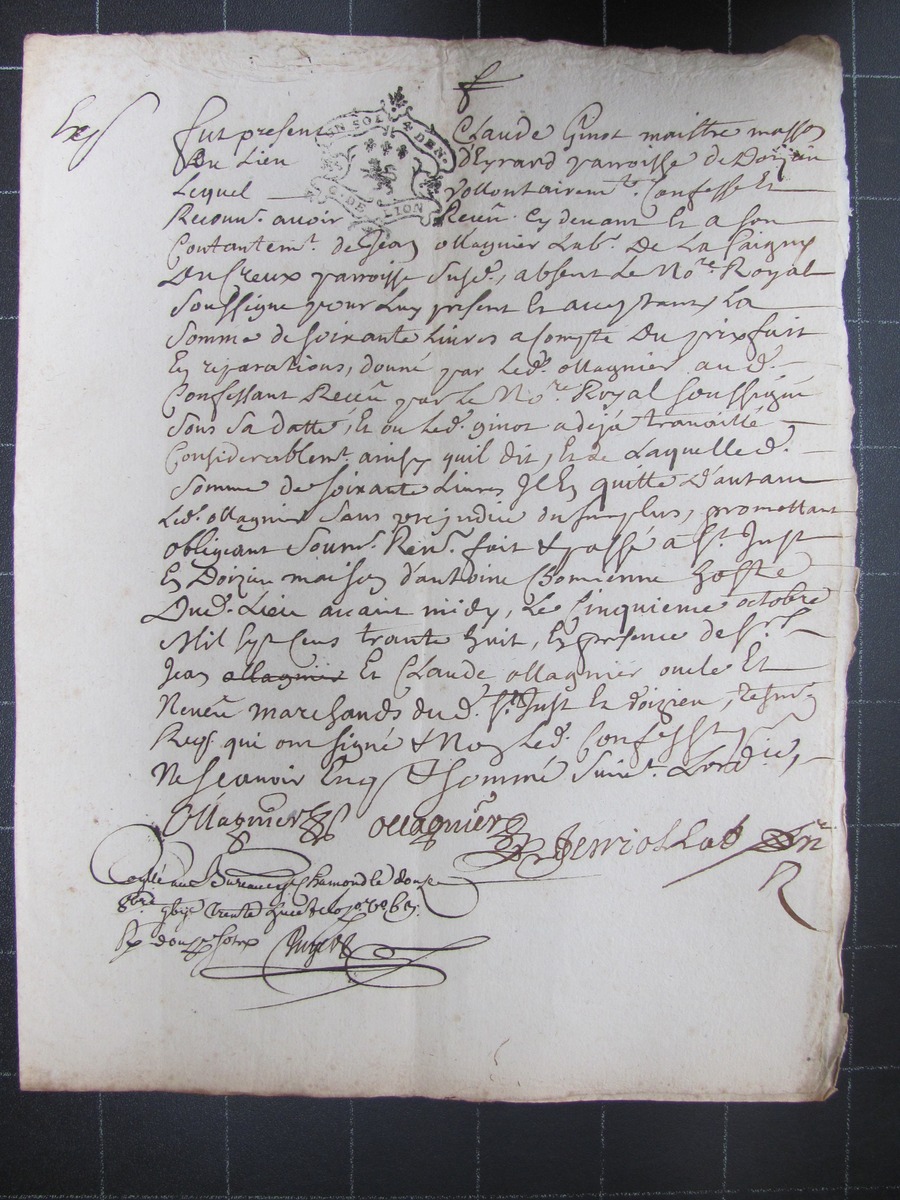 Exp
fut present Claude Ginot maistre masson
Du Lieu d'Eyrard parroisse de Doizieu
Lequel vollontairemt. Confesse Et
Reconnt. avoir Receu cy devant Et a son
Contantemt. de Jean ollagnier Labr. De La
Du Creux parroisse Susde., absent Le Nore. Royal
Soussigné pour Luy présent Et acceptant, La
Somme de soixante Livres a Compte Du prixfait
En réparations, donné par Led. ollagnier au d.
Confessant Receu par Le Nore. Royal Soussigné
Sous Sa datte, Et ou Led. ginot a déjà travaillé
Considerablemt. ainsy quil dit, Et de Laquelle d.
Somme de soixante Livres Il En quitte D'autant
Led. ollagnier Sans prejudice du surplus, promettant
obligeant Soumt. Rent. fait & passé a St. Just
En Doizieu maison d'antoine Chomienne hoste
Dud. Lieu avant midy, Le Cinquieme octobre
Mil Sept Cens trante huit, En présence de Srs.
Jean ollagnier Et Claude ollagnier oncle Et
Neveu marchands du d. St. Just En doizieu, tesms.
Reqs. qui ont signé & Non Led. Confesst.
Ne scavoir Enq. & sommé Suivt. Lord.ce,
EN SOL 4 DEN.
G. DE LION
Ollagnier ollagnier
Bureau de St Chamond le douze
8bre trente huit
Rx douze sols